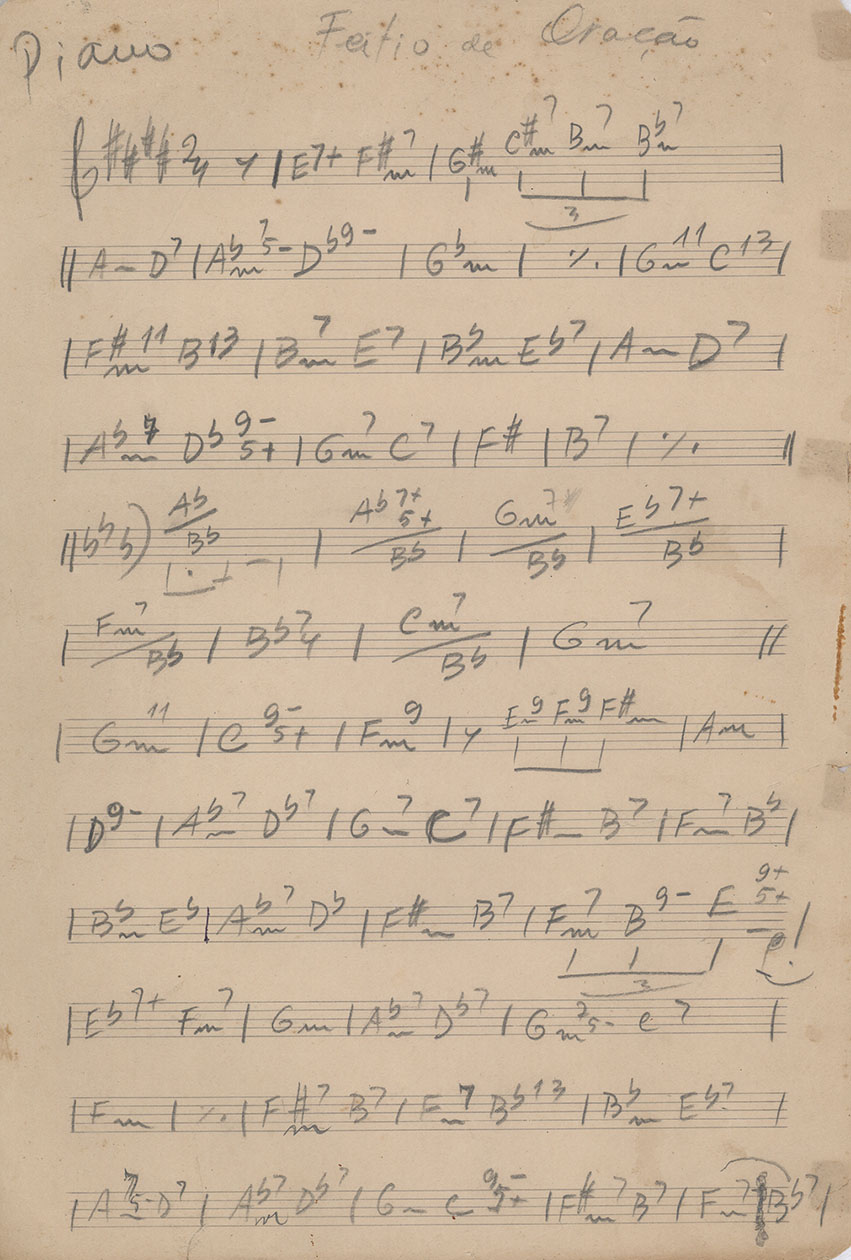 Piano Feitio de Oração
#### 2/4 𝄾 | E7+ F#m7 | G#m C#m7 Bm7 Bbm7 |
3
|| Am D7 | Abm7 5- Db9- | Gbm | ٪ | Gm11 C13 |
| F#m11 B13 | Bm7 E7 | Bbm Eb7 | Am D7 |
| Abm7 Db9- 5+ | Gm7 C7 | F# | B7 | ٪ ||
|| bbb) Ab/Bb | Ab7+ 5+/Bb | Gm7/Bb | Eb7+/Bb |
| Fm7/Bb | Bb7 4 | Cm7/Bb | Gm7 ||
| Gm11 | C9- 5+ | Fm9 | 𝄾 Em9 Fm9 F#m | Am |
| D9- | Abm7 Db7 | Gm7 C7 | F#m B7 | Fm7 Bb |
| Bbm Eb | Abm7 Db | F#m B7 | Fm7 B9- E 9+ 5+ |
3
| Eb7+ Fm7 | Gm | Abm7 Db7 | Gm7 5- C7 |
| Fm | ٪ | F#m7 B7 | Fm7 Bb13 | Bbm Eb7 |
| Am7 5- D7 | Abm7 Db7 | Gm C9- 5+ | F#m7 B7 | Fm7 Bb7 |